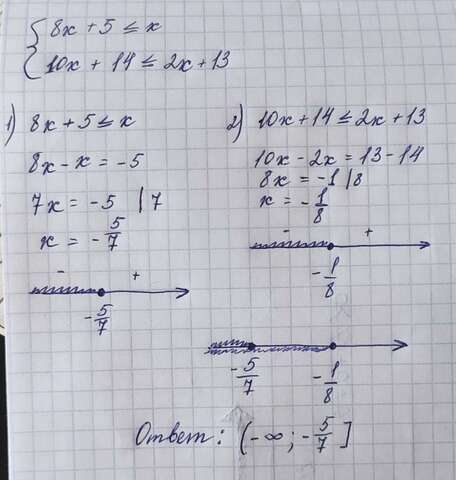 { 8x + 5 ≤ x
10x + 14 ≤ 2x + 13
1) 8x + 5 ≤ x
8x - x = -5
7x = -5 | 7
x = -5/7
- +
-5/7
2) 10x + 14 ≤ 2x + 13
10x - 2x = 13 - 14
8x = -1 | 8
x = -1/8
- +
-1/8
-5/7 -1/8
Ответ: (-∞; -5/7]